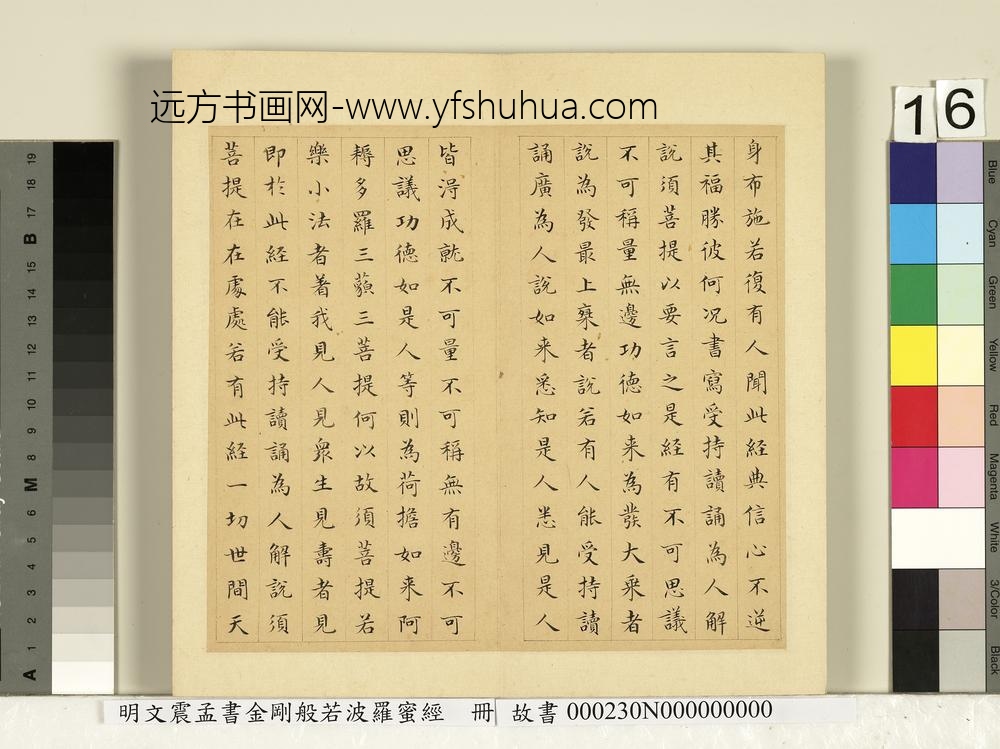 远方书画网-www.yfshuhua.com
16
身布施若復有人聞此經典信心不逆
其福勝彼何况書寫受持讀誦為人解
說須菩提以要言之是經有不可思議
不可稱量無邊功德如来為發大乗者
說為發最上乗者說若有人能受持讀
誦廣為人說如来悉知是人悉見是人
皆淂成就不可量不可稱無有邊不可
思議功德如是人等則為荷擔如来阿
耨多羅三藐三菩提何以故須菩提若
樂小法者著我見人見衆生見壽者見
即於此經不能受持讀誦為人解說須
菩提在在處處若有此經一切世間天
明文震孟書金剛般若波羅蜜經 冊 故書 000230N000000000
Blue
Cyan
Green
Yellow
Red
Magenta
White
3/Color
Black
19
18
17
B
15
14
13
12
11
10
9
8
M
6
5
4
3
2
1
A